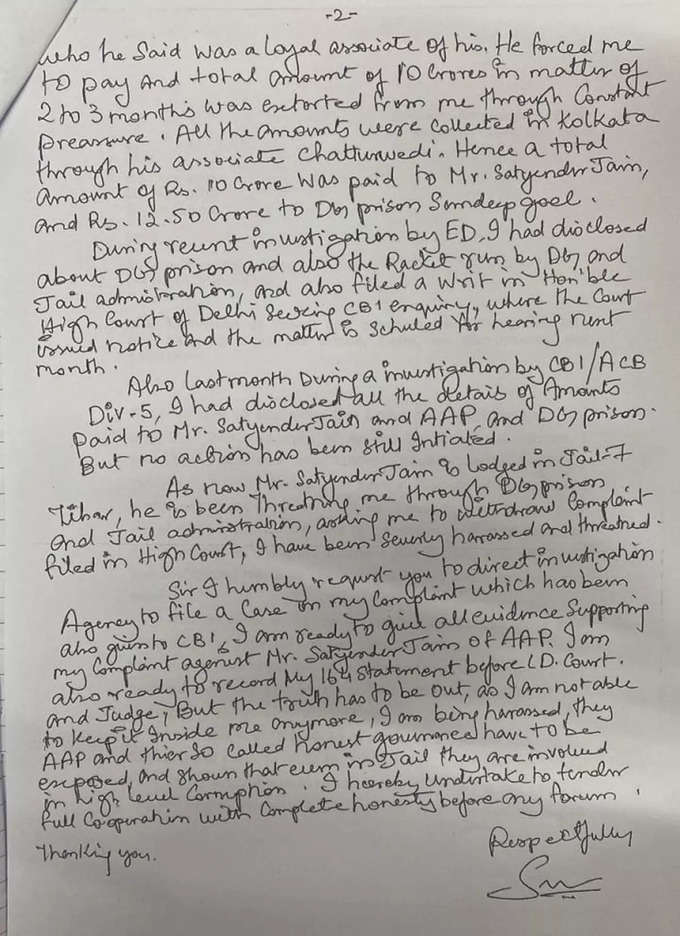 -2-
who he said was a loyal associate of his. He forced me
to pay and total amount of 10 Crores in matter of
2 to 3 months was extorted from me through Constant
preassure. All the amounts were collected in Kolkata
through his associate Chatturwedi. Hence a total
amount of Rs. 10 Crore was paid to Mr. Satyender Jain,
and Rs. 12.50 Crore to DG prison Sandeep goel.
During recent investigation by ED, I had disclosed
about DG prison and also the Racket run by DG and
Jail administration, and also filed a writ in Hon'ble
High Court of Delhi seeking CBI enquiry, where the Court
issued notice and the matter is schuled for hearing next
month.
Also last month During a investigation by CBI/ACB
Div-5, I had disclosed all the details of Amounts
paid to Mr. Satyender Jain and AAP, and DG prison.
But no action has been still Intiated.
As now Mr. Satyender Jain is lodged in Jail-7
Tihar, he is been Threatning me through DG prison
and Jail administration, asking me to withdraw Complaint
filed in High Court, I have been severly harassed and threatned.
Sir I humbly request you to direct investigation
Agency to file a case on my Complaint which has been
also given to CBI, I am ready to give all evidence supporting
my Complaint against Mr. Satyender Jain of AAP. I am
also ready to record my 164 statement before LD. Court.
and Judge, But the truth has to be out, as I am not able
to keep it inside me anymore, I am being harassed, they
AAP and thier so called honest governance have to be
exposed, and shown that even in Jail they are involved
in high level Corruption. I hereby undertake to tender
full Co-operation with Complete honesty before any forum.
Respectfully
Thanking you.